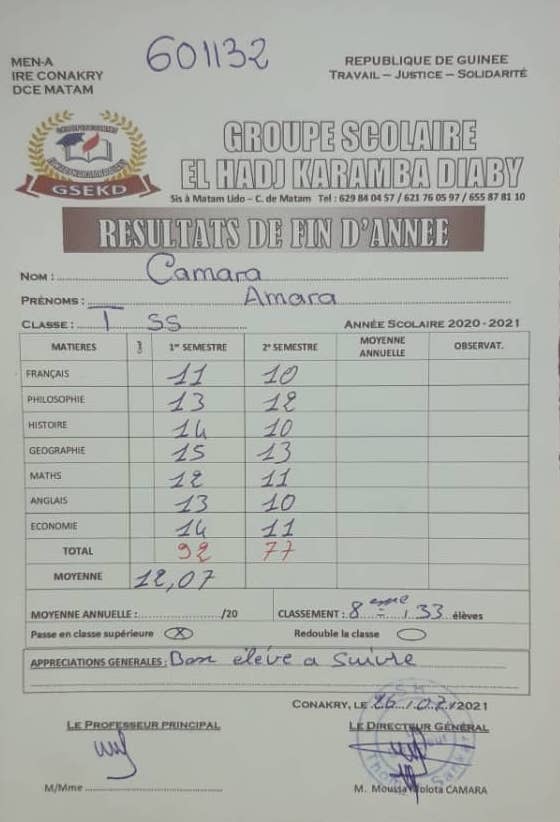 601132
MEN-A
IRE CONAKRY
DCE MATAM
REPUBLIQUE DE GUINEE
TRAVAIL – JUSTICE – SOLIDARITÉ
GSEKD
GROUPE SCOLAIRE
EL HADJ KARAMBA DIABY
Sis à Matam Lido – C. de Matam Tel : 629 84 04 57 / 621 76 05 97 / 655 87 81 10
RESULTATS DE FIN D'ANNEE
NOM : Camara
PRÉNOMS : Amara
CLASSE : T SS ANNÉE SCOLAIRE 2020 - 2021
MATIERES 1er SEMESTRE 2e SEMESTRE MOYENNE ANNUELLE OBSERVAT.
FRANÇAIS 11 10
PHILOSOPHIE 13 12
HISTOIRE 14 10
GEOGRAPHIE 15 13
MATHS 12 11
ANGLAIS 13 10
ECONOMIE 14 11
TOTAL 92 77
MOYENNE 12,07
MOYENNE ANNUELLE : /20 CLASSEMENT : 8eme / 33 élèves
Passe en classe supérieure X Redouble la classe
APPRECIATIONS GENERALES : Bon élève a suivre
CONAKRY, LE 26 / 07 / 2021
LE PROFESSEUR PRINCIPAL LE DIRECTEUR GÉNÉRAL
M/Mme M. Moussa CAMARA